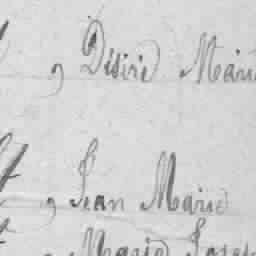 , Désiré Marie
, Jean Marie
, Marie Joseph